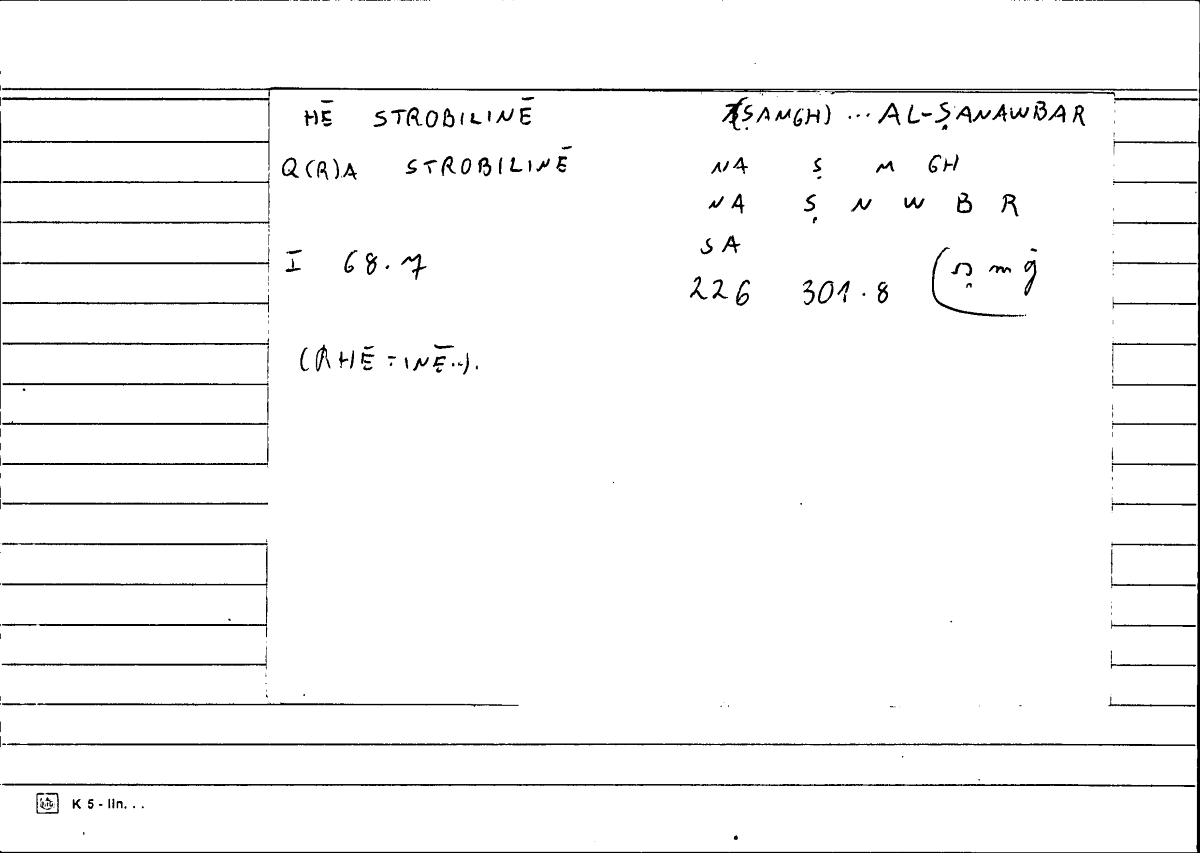 HĒ STROBILINĒ (ṢAMGH) ... AL-ṢANAWBAR
Q(R)A STROBILINĒ NA Ṣ M GH
NA Ṣ N W B R
SA
I 68.7 226 301.8 ṣ m ġ
(RHĒ=INĒ..).
K 5 - lin. . .